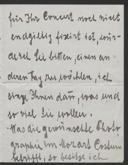 für Ihr Concert noch nicht
endgiltig fixiert ist, wür-
de ich Sie bitten, einen an-
deren Tag zu wählen, ich
singe Ihnen dann, was und
so viel Sie wollen.
Was die gewünschte Photo-
graphie im Mozart Costüm
betrifft, so besitze ich